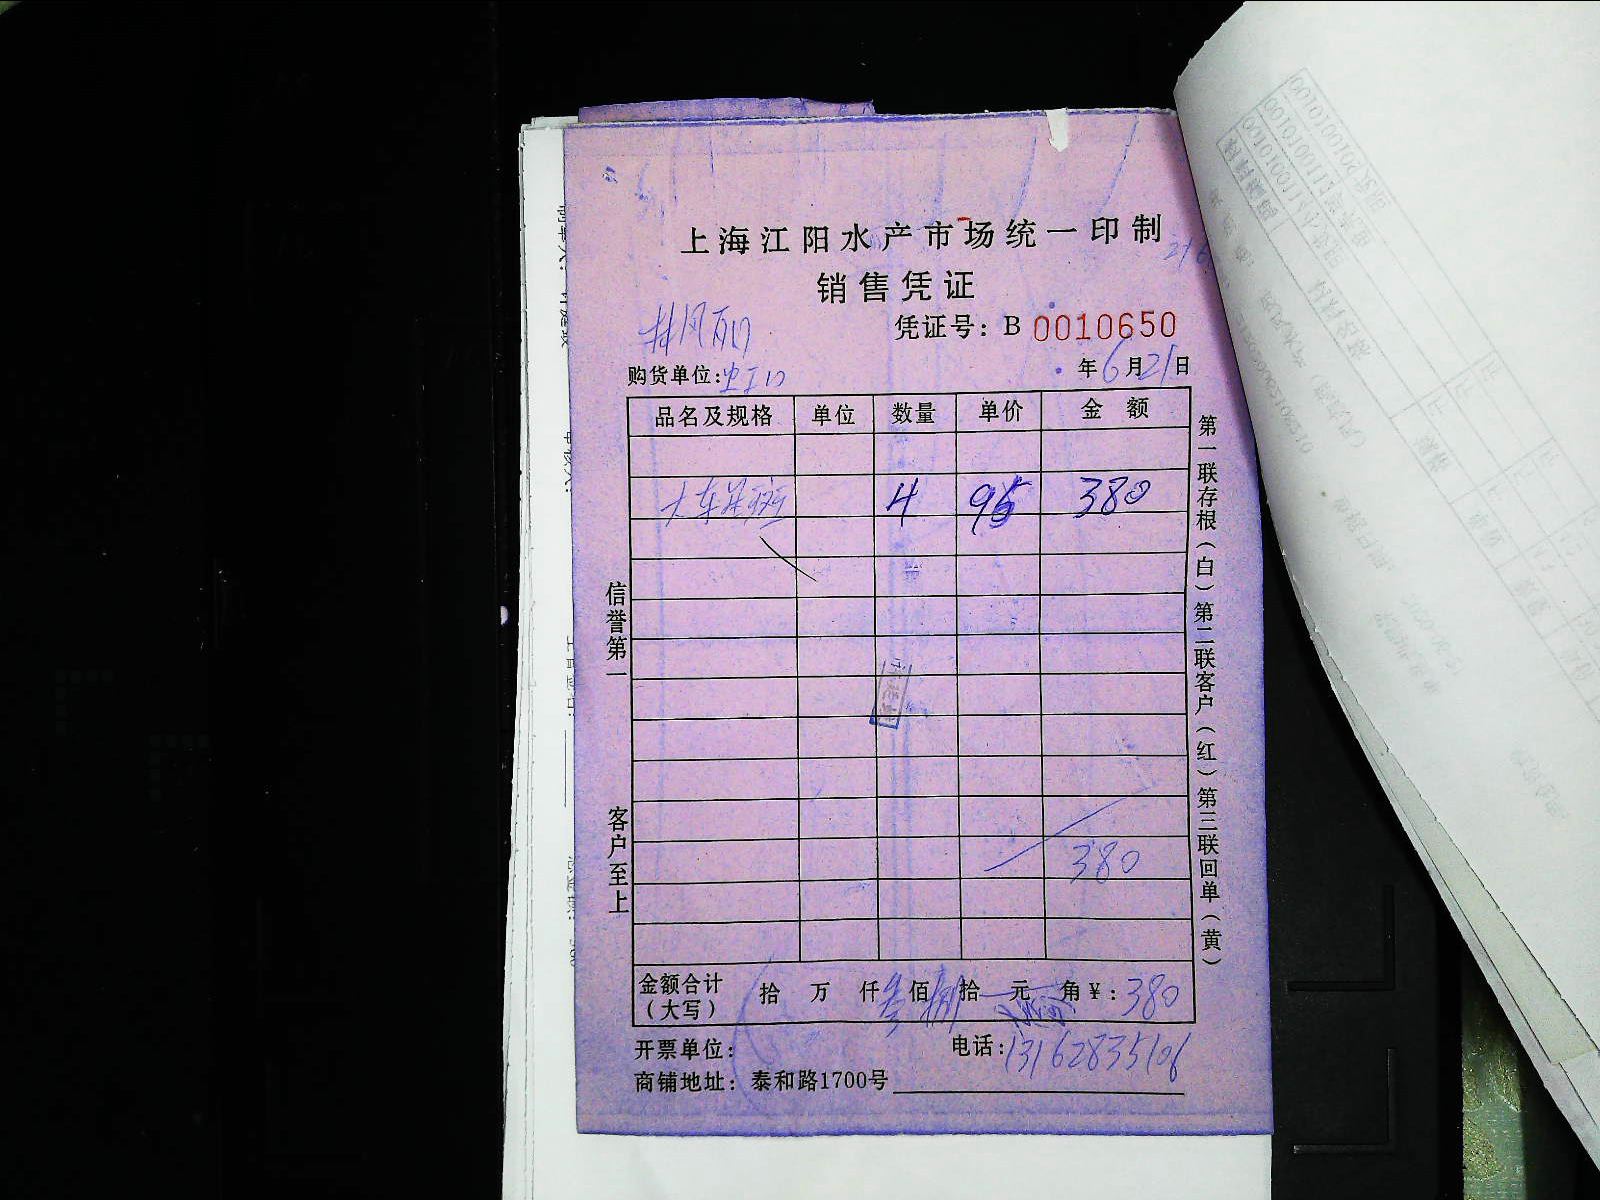 上海江阳水产市场统一印制
销售凭证
凭证号: B 0010650
林凤丽
购货单位: 虹口
年6月21日
品名及规格 单位 数量 单价 金额
4 95 380
380
金额合计（大写） 拾 万 仟 叁佰 捌拾 元 角 ¥: 380
开票单位:
电话: 13162835106
商铺地址: 泰和路1700号
信誉第一
客户至上
第一联存根（白）第二联客户（红）第三联回单（黄）